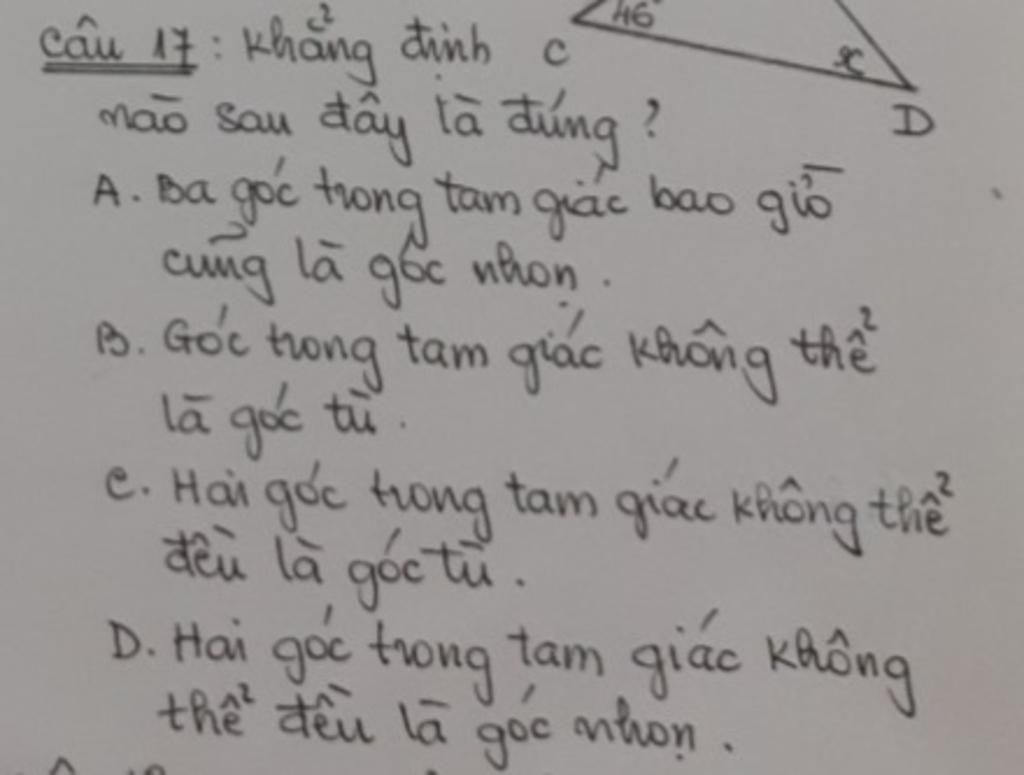 46°
Câu 17: Khẳng định C x
nào sau đây là đúng? D
A. Ba góc trong tam giác bao giờ
cũng là góc nhọn.
B. Góc trong tam giác không thể
là góc tù.
C. Hai góc trong tam giác không thể
đều là góc tù.
D. Hai góc trong tam giác không
thể đều là góc nhọn.